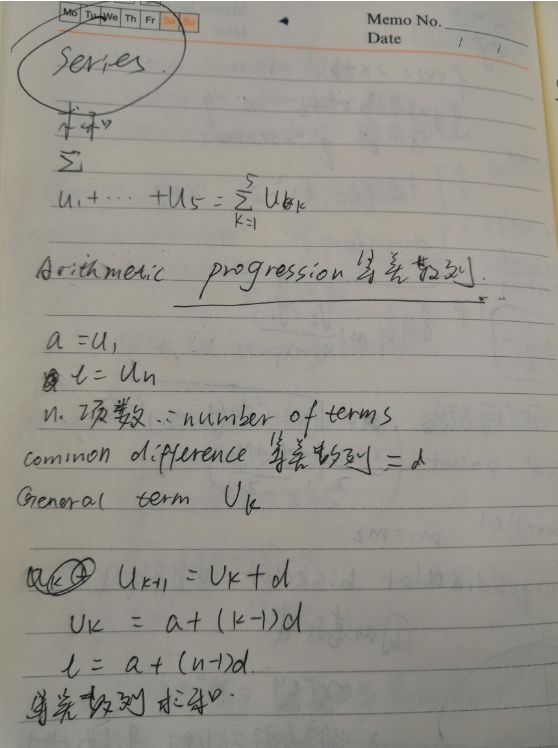 Mo Tu We Th Fr Sa Su
Memo No.
Date / /
Series.
求和
Σ
u₁+⋯ +u₅ = Σ_{k=1}^{5} u_k
Arithmetic progression 等差数列.
a = u₁
l = un
n. 项数 ∴ number of terms.
common difference 等差数列 = d
General term Uk
Uk+1 = Uk + d
Uk = a + (k-1)d
l = a + (n-1)d.
等差数列求和.